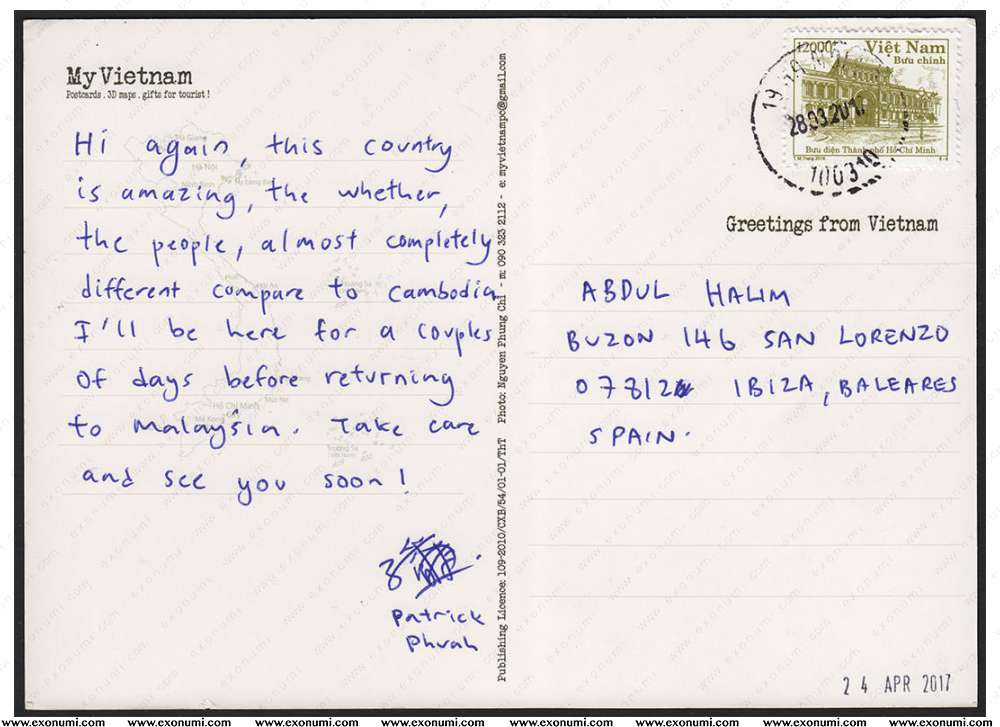 My Vietnam
Postcards . 3D maps . gifts for tourist !
Hi again, this country
is amazing, the whether,
the people, almost completely
different compare to Cambodia
I'll be here for a couples
of days before returning
to Malaysia. Take care
and see you soon!
Patrick
Phuah
Publishing Licence: 109-2010/CXB/54/01-01/ThT Photo: Nguyen Phung Chi - m: 090 323 2112 - e: myvietnampc@gmail.com
12000đ
Việt Nam
Bưu chính
Bưu điện Thành phố Hồ Chí Minh
28.03.201
100310
Greetings from Vietnam
ABDUL HALIM
BUZON 146 SAN LORENZO
07812 IBIZA, BALEARES
SPAIN.
24 APR 2017
www.exonumi.com www.exonumi.com www.exonumi.com www.exonumi.com www.exonumi.com www.exonumi.com www.exonumi.com www.exonumi.com